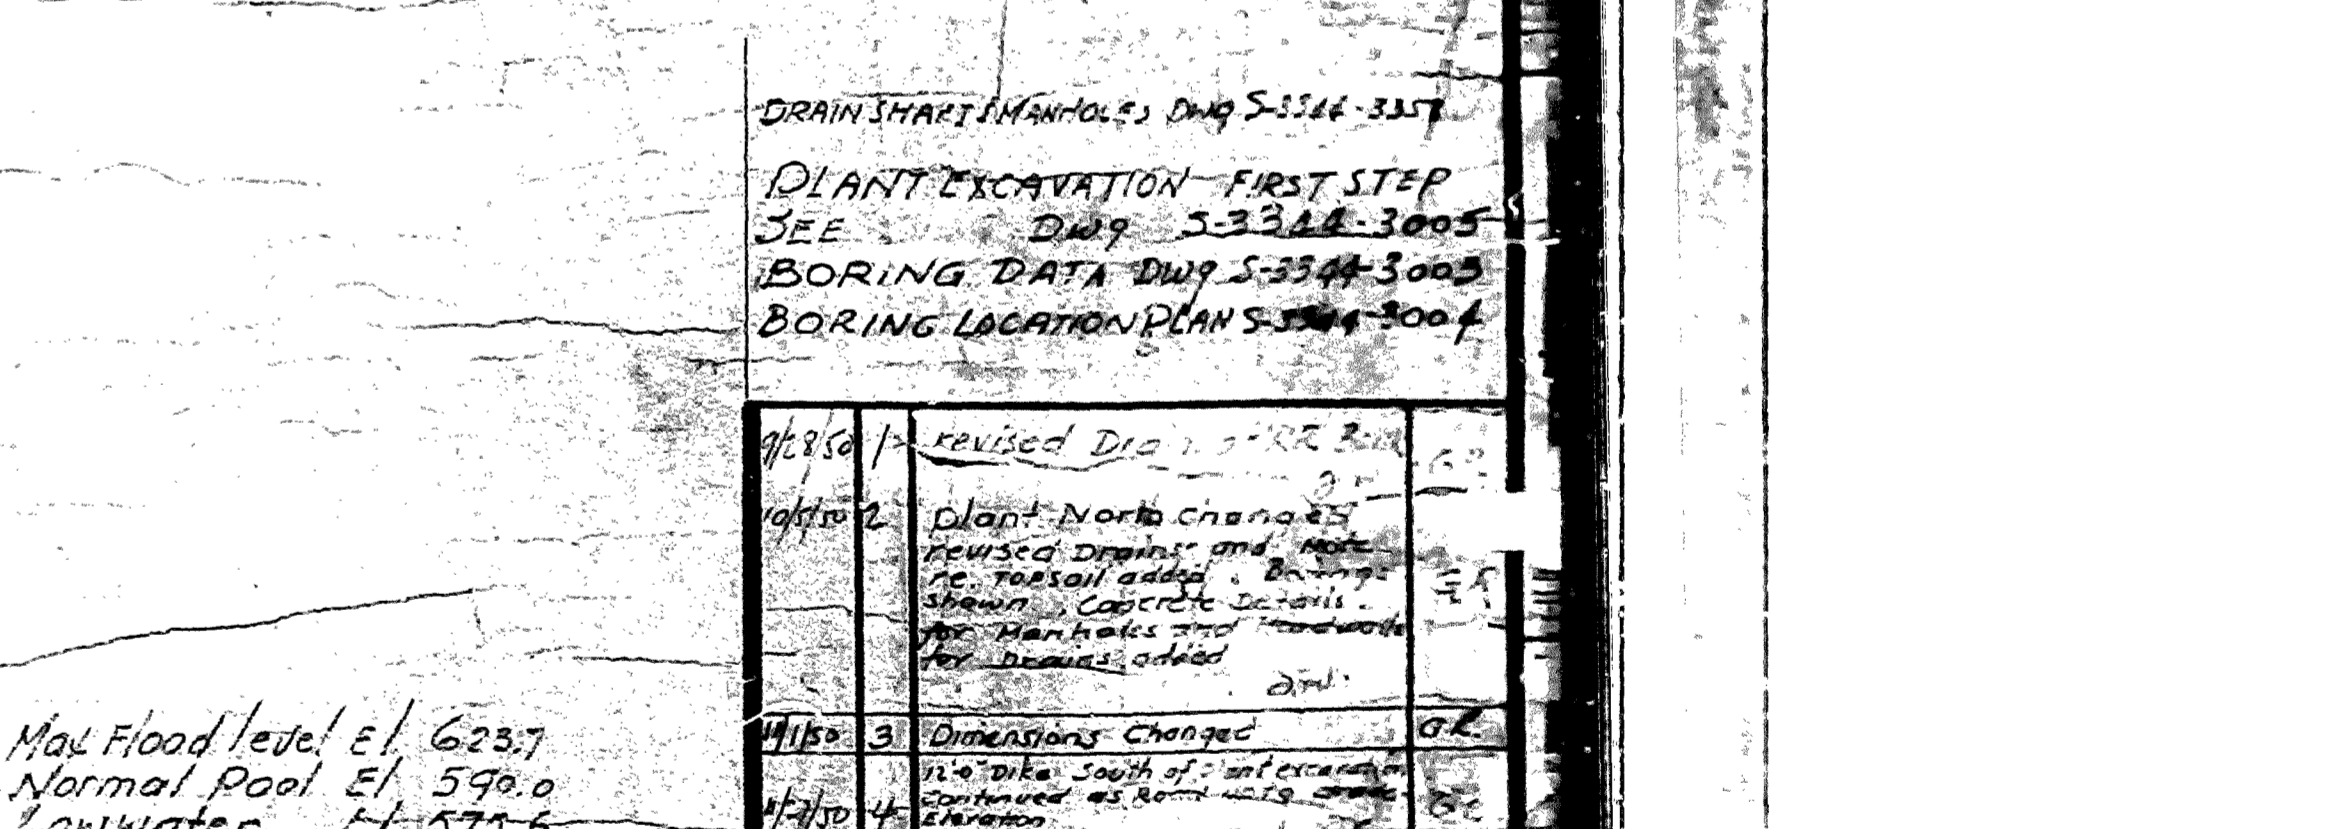 DRAIN SHAFTS MANHOLES Dwg S-3344-3357
PLANT EXCAVATION FIRST STEP
SEE Dwg S-3344-3005
BORING DATA Dwg S-3344-3003
BORING LOCATION PLAN S-3344-3004
9/28/50 1 revised
10/5/50 2 plant North Changed
revised Drains and Note
re. Topsoil added. Borings
shown, Concrete Details.
for Manholes and
for Drains added
3 Dimensions Changed GR.
12'-0" Dike South of
Continued as Road
4 Elevation
Max Flood level El. 623.7
Normal Pool El 590.0
Low Water El 575.6